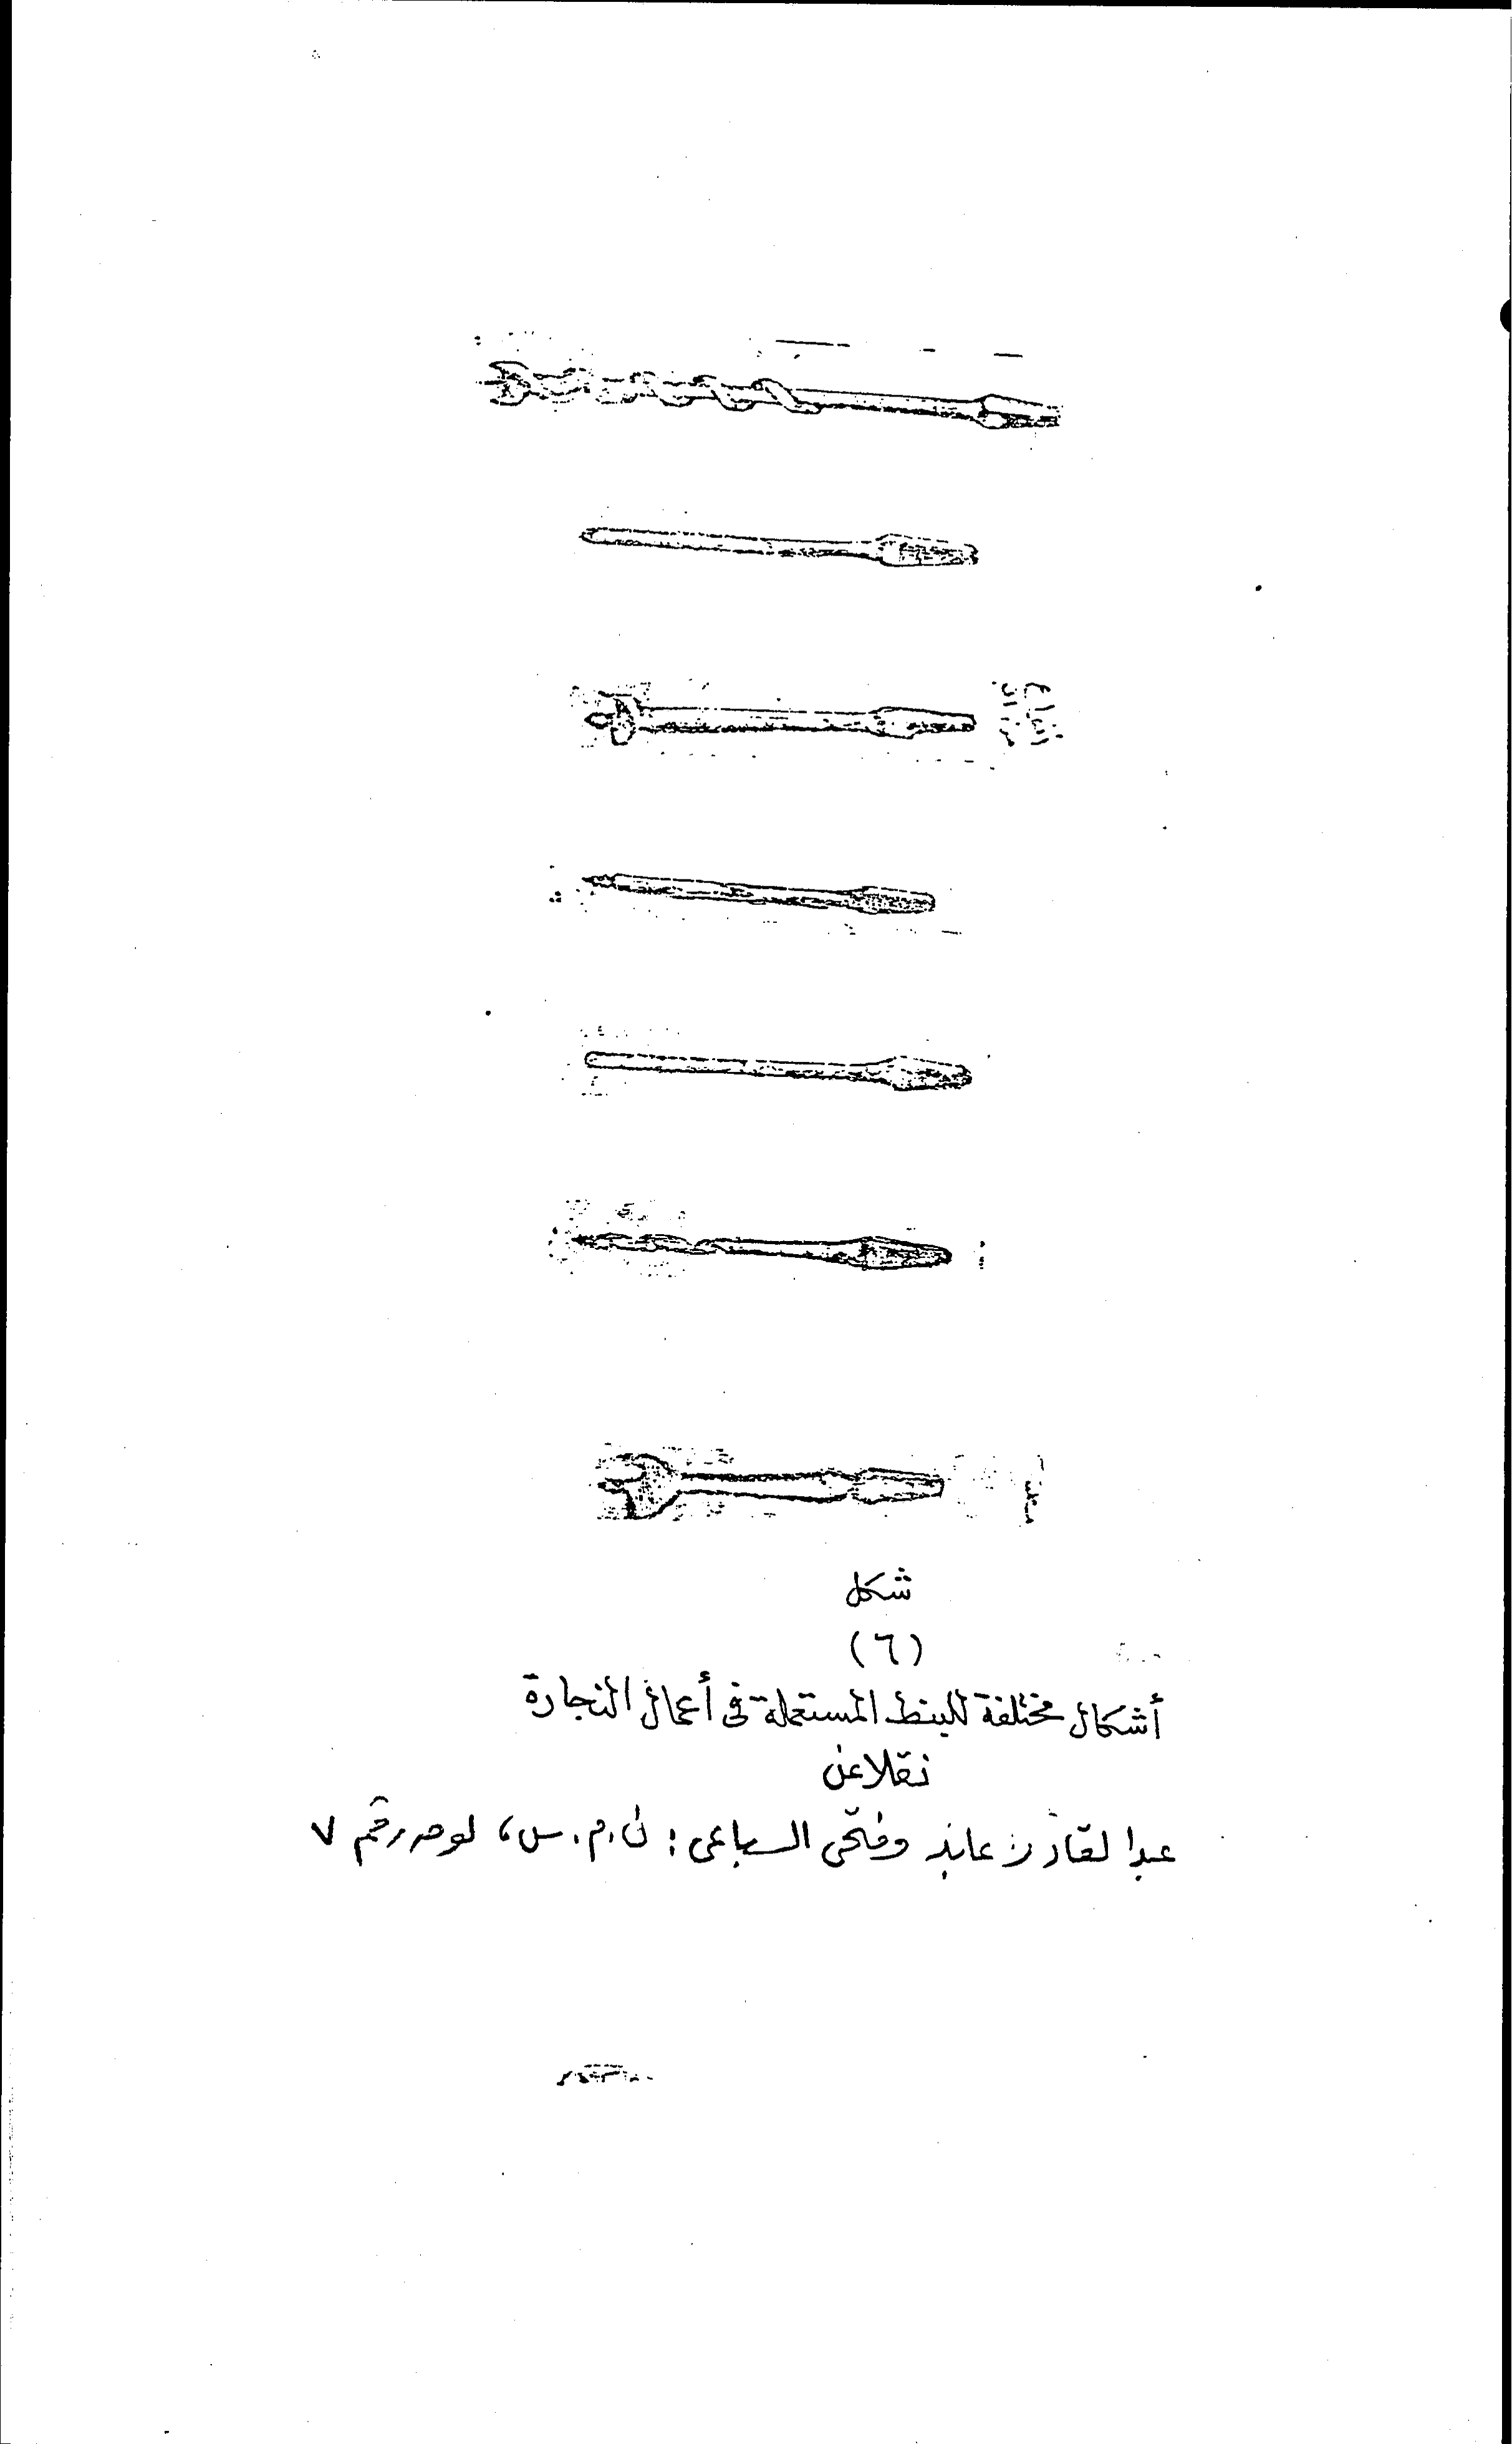 شكل
(٦)
أشكال مختلفة للبنط المستعملة فى أعمال النجارة
نقلا عن
عبد القادر عابد وفتحى السباعى : ن . م . س ، لوحه رقم ٧